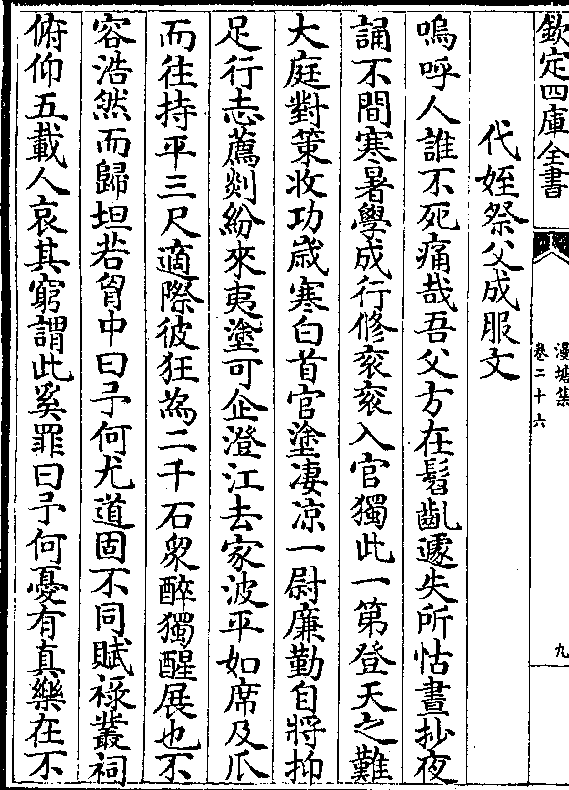 欽定四庫全書
漫塘集
卷二十六
九
代姪祭父成服文
嗚呼人誰不死痛哉吾父方在髫齔遽失所怙晝抄夜
誦不間寒暑學成行修衮衮入官獨此一第登天之難
大庭對策收功歳寒白首官塗凄凉一尉廉勤自將抑
足行志薦剡紛來夷塗可企澄江去家波平如席及瓜
而往持平三尺適際彼狂為二千石衆醉獨醒展也不
容浩然而歸坦若胷中曰予何尤道固不同賦祿叢祠
俯仰五載人哀其窮謂此奚罪曰予何憂有真樂在不